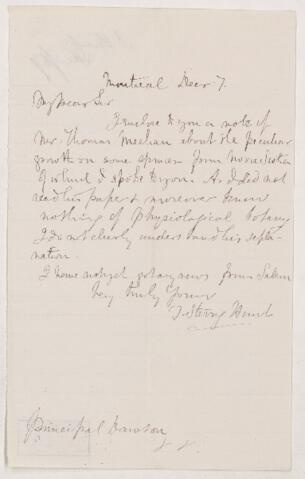 Montreal Decr 7.
My dear Sir
I enclose to you a note of
Mr. Thomas Meehan about the peculiar
growth on some spruces from Nova Scotia
of which I spoke to you. As I did not
read his paper & moreover know
nothing of physiological botany
I do not clearly understand his expla-
nation.
I have not yet got any news from Salem
Very truly yours
T. Sterry Hunt
Principal Dawson